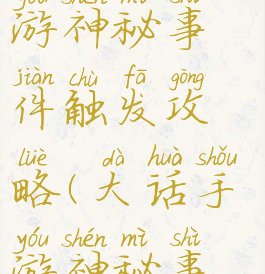 yóu shén mì shì
游神秘事
jiàn chù fā gōng
件触发攻
lüè dà huà shǒu
略(大话手
yóu shén mì shì
游神秘事